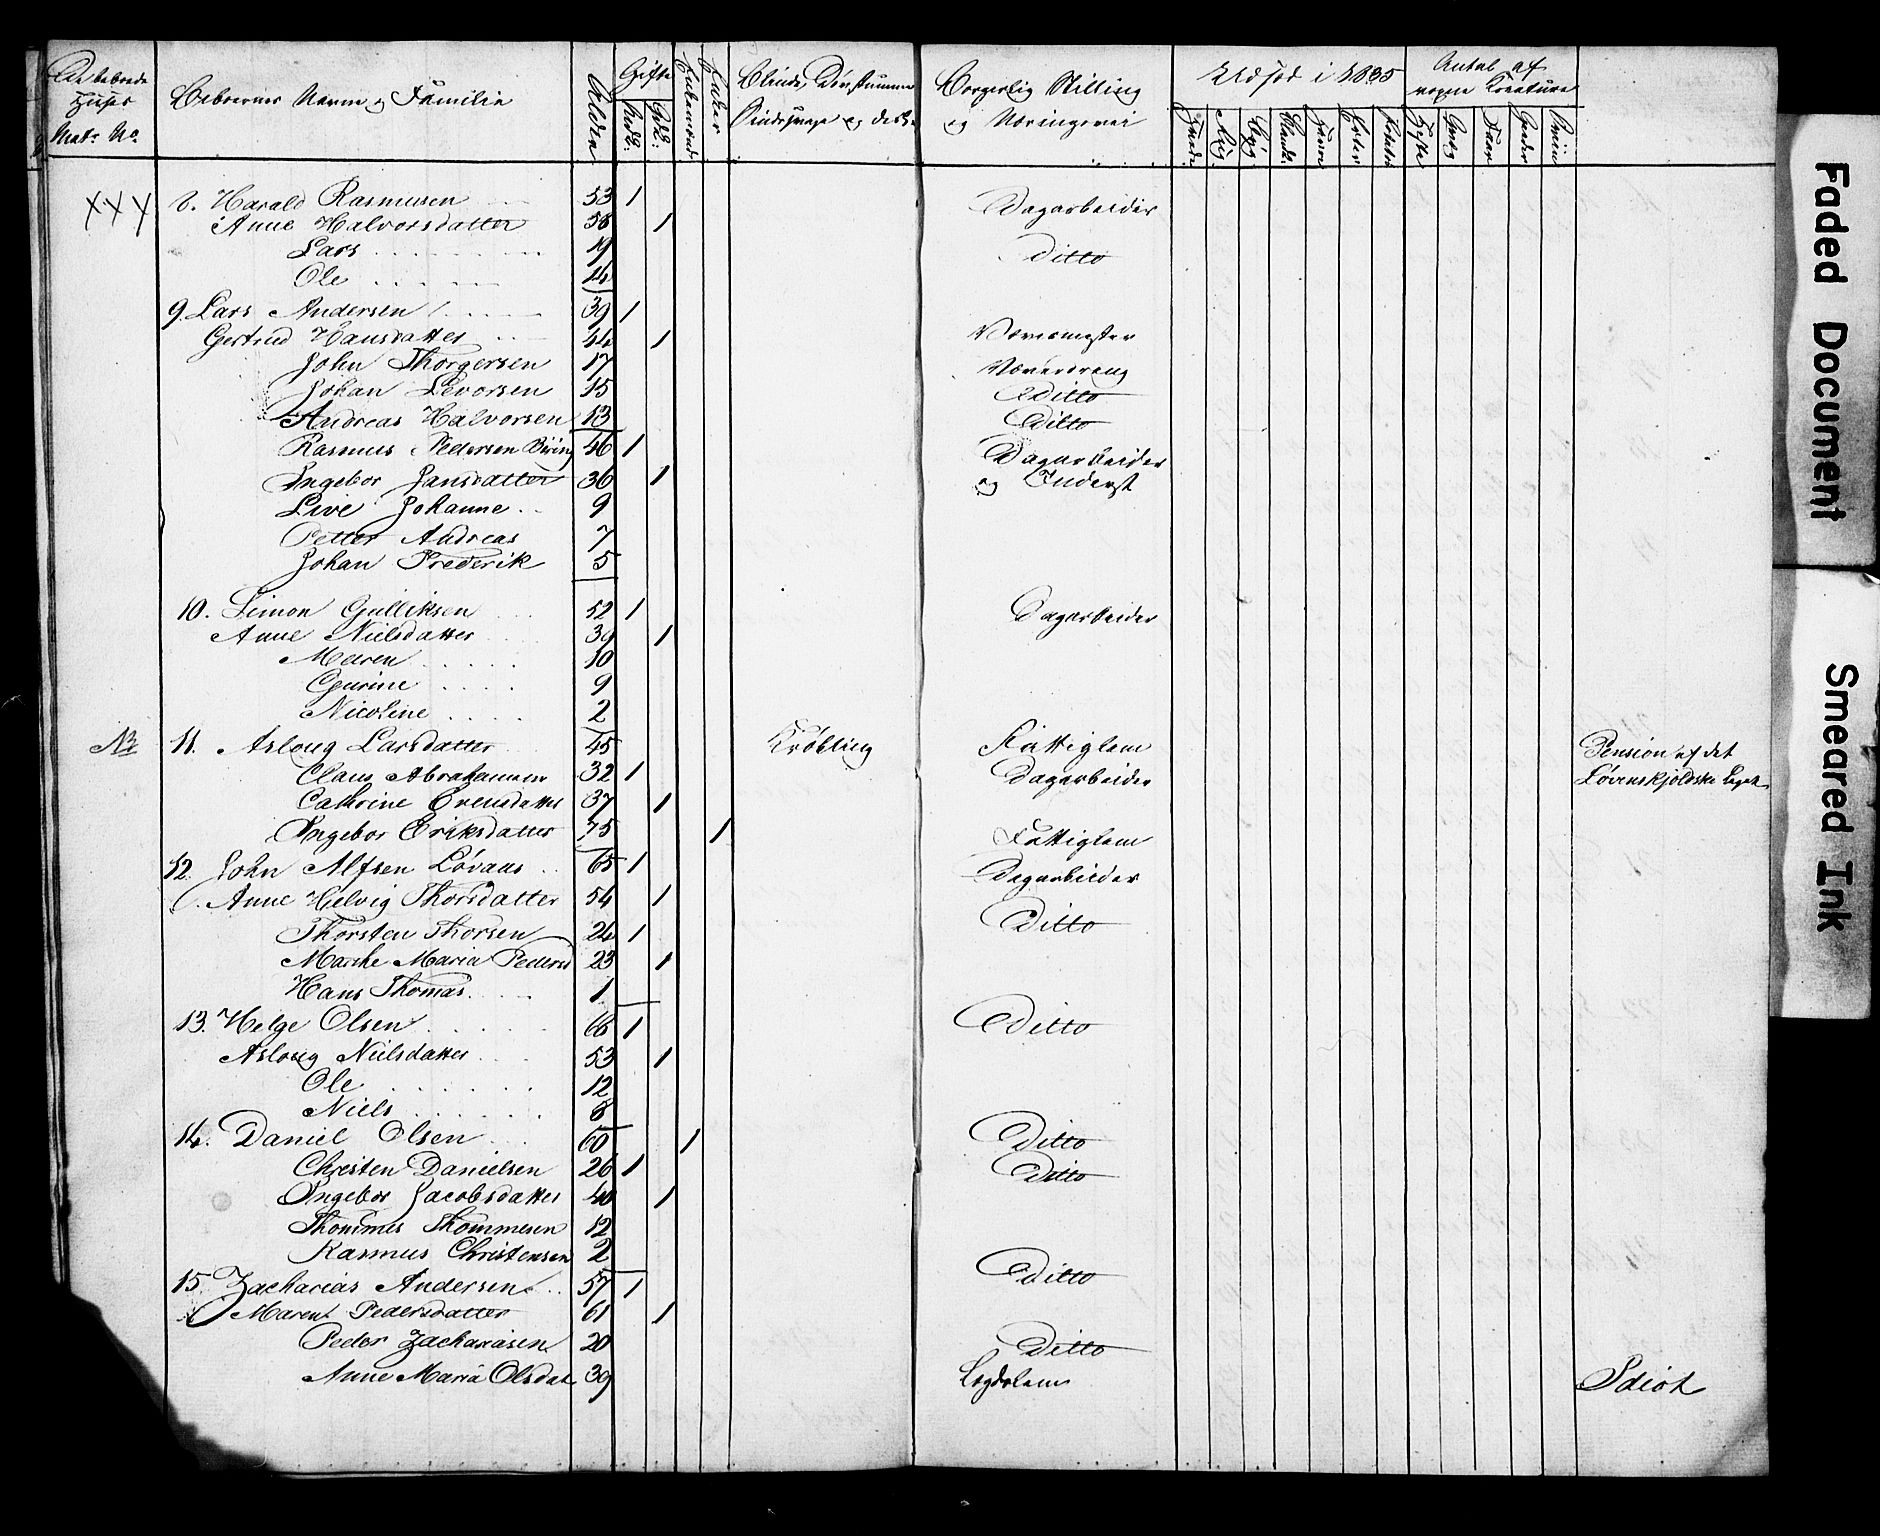 De beboede Huses Matr No.
Beboernes Navn og Familie
Alder
Gifte
Enkemænd
Enker
Blinde, Døvstumme
Borgerlig Stilling og Næringsvei
Udsæd i 1835
Hvede Rug Byg Bland. Havre Erter Poteter
Antal af
Heste Faar Geder Sviin
8. Harald Rasmusen 53 1 Dagarbeider
Anne Halvorsdatter 58 1
Lars 19 Ditto
Ole 14
9. Lars Andersen 39 1
Gertrud Hansdatter 44 1 Vævermester
John Thorgersen 17 Væverdreng
Johan Levorsen 15 Ditto
Andreas Halvorsen 13 Ditto
Rasmus Pedersen 46 1 Dagarbeider
Ingebor Jansdatter 36 1 og Inderst
Live Johanne 9
Petter Andreas 7
Johan Frederik 5
10. Simon Gulliksen 52 1 Dagarbeider
Anne Nielsdatter 39 1
Maren 10
Gurine 9
Nicoline 2
11. Asloug Larsdatter 45 Krøbling Fattiglem Pension af det
Claus Abrahamsen 32 1 Dagarbeider Løvenskjoldske Legat
Cathrine Evensdatter 37 1
Ingebor Eriksdatter 75 1 Fattiglem
12. John Alfsen Løvaas 65 1 Dagarbeider
Anne Helvig Thorsdatter 54 1
Thorsten Thorsen 24 1 Ditto
Marthe Maria Pedersd 23 1
Hans Thomas 1
13. Helge Olsen 66 1 Ditto
Asloug Nielsdatter 53 1
Ole 12
Niels 8
14. Daniel Olsen 60 1 Ditto
Christen Danielsen 26 1 Ditto
Ingebor Jacobsdatter 40 1
Thommes Thommesen 12
Rasmus Christensen 2
15. Zacharias Andersen 57 1 Ditto
Marent Pedersdatter 61 1
Peder Zachariasen 20 Ditto
Anne Maria Olsdat 39 Lægdslem Idiot
Faded Document
Smeared Ink